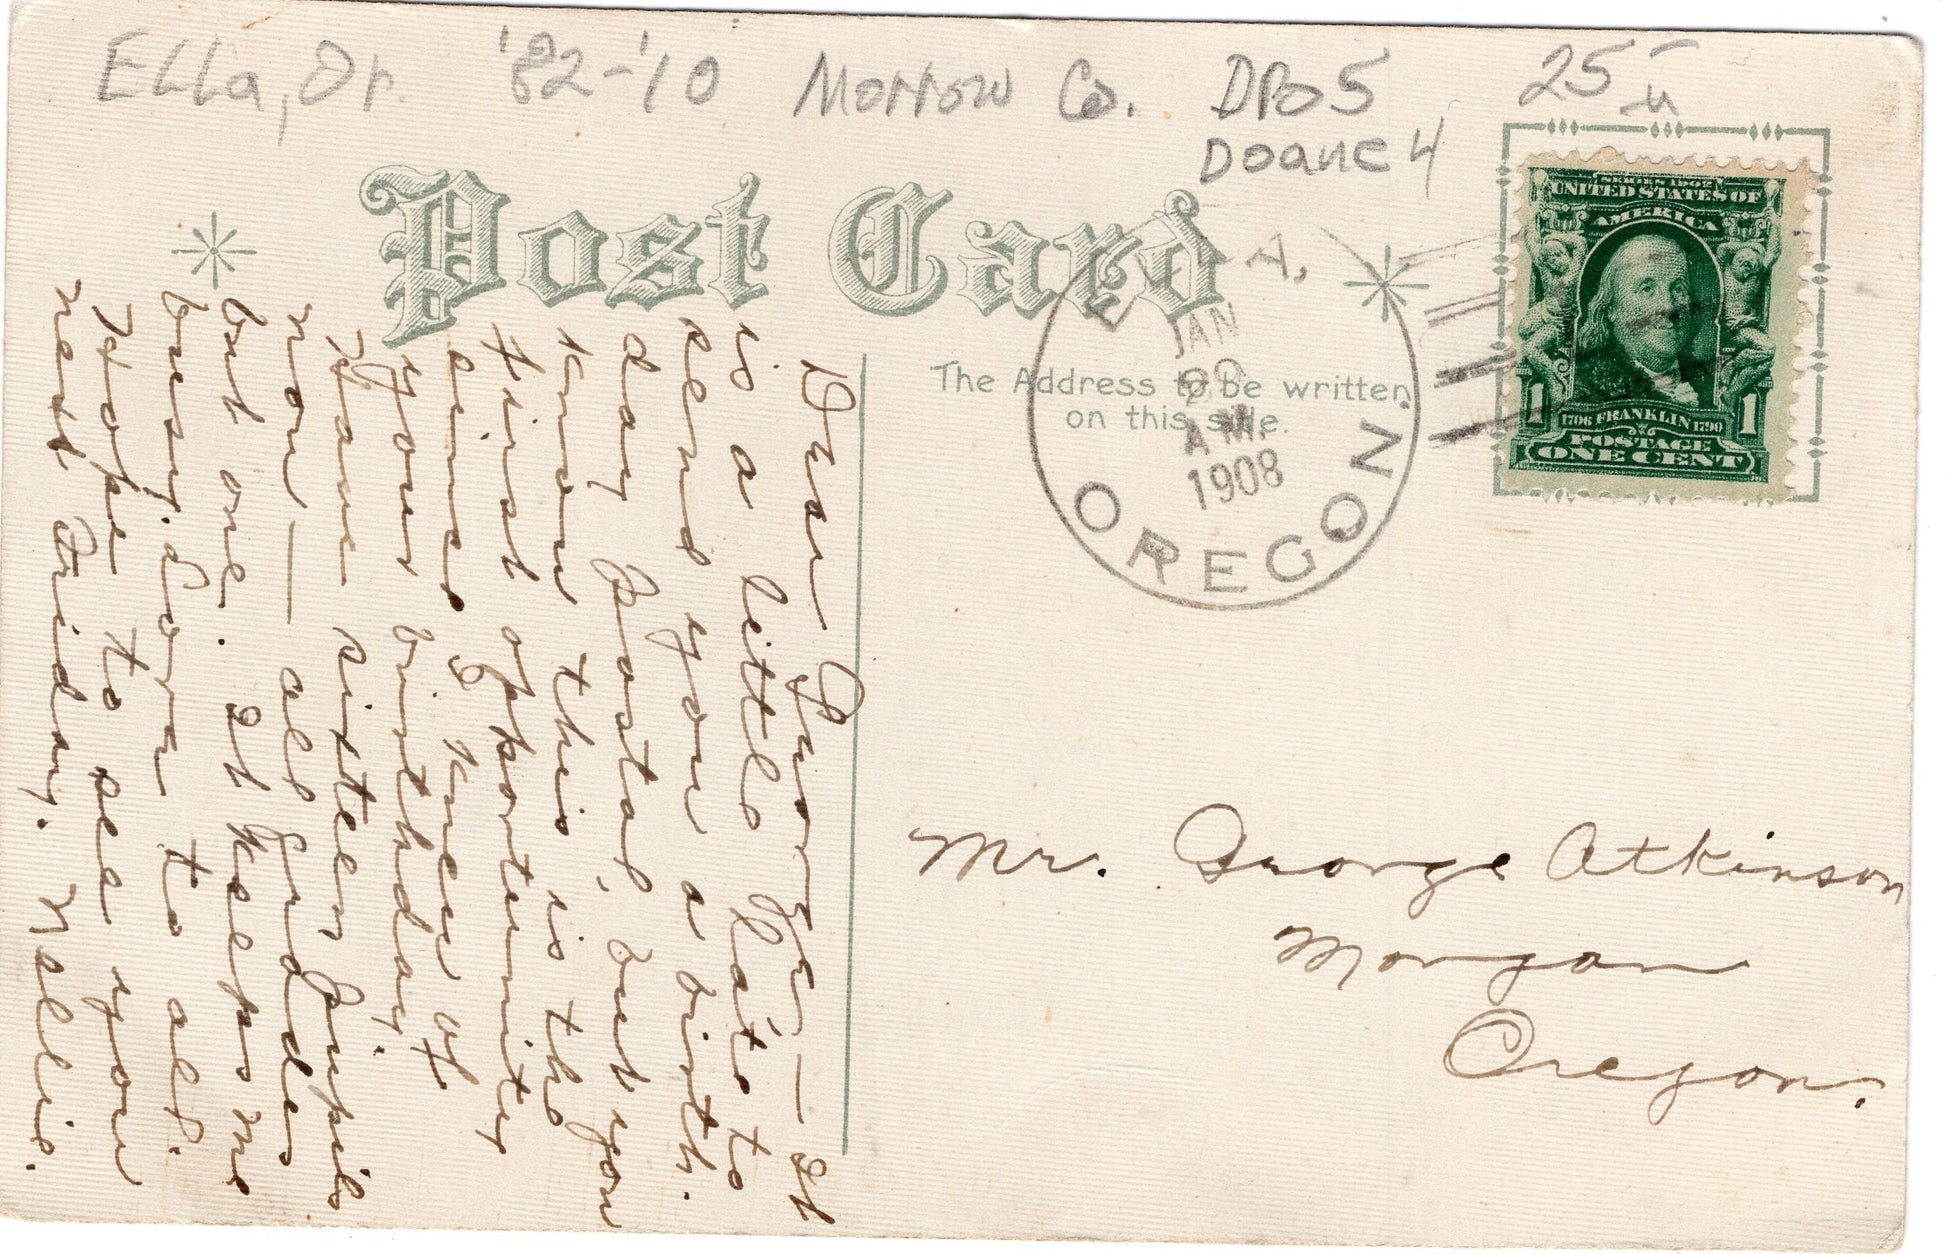 Ella, Or. '82-'10 Morrow Co. DPO 5 25
Doane 4
Post Card
The Address to be written
on this side.
ELLA,
JAN
A.M.
1908
OREGON.
SERIES 1902
UNITED STATES OF
AMERICA
1 1
1706 FRANKLIN 1790
POSTAGE
ONE CENT
Dear George,— It
is a little late to
send you a birth.
day postal, but you
know this is the
first opportunity
since I knew of
your birthday.
Have sixteen pupils
now — all grades
but one. It keeps me
busy. Love to all.
Hope to see you
next Friday. Nellie.
Mr. George Atkinson
Morgan
Oregon.